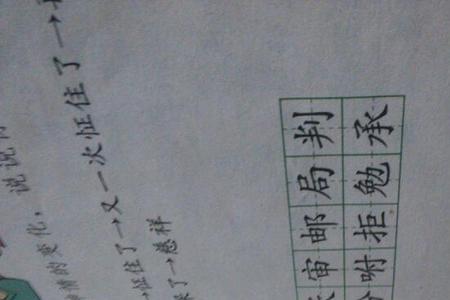 情的变化，说说
怔住了→又一次怔住了→
了→慈祥
审邮局判
咐拒勉承